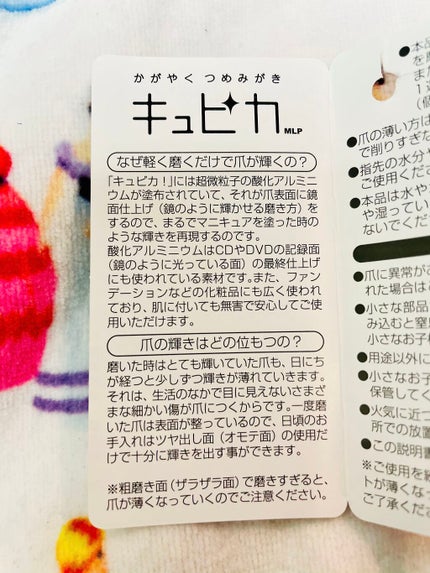 かがやく つめみがき
キュピカ MLP
なぜ軽く磨くだけで爪が輝くの？
「キュピカ！」には超微粒子の酸化アルミニ
ウムが塗布されていて、それが爪表面に鏡
面仕上げ（鏡のように輝かせる磨き方）を
するので、まるでマニキュアを塗った時の
ような輝きを再現するのです。
酸化アルミニウムはCDやDVDの記録面
（鏡のように光っている面）の最終仕上げ
にも使われている素材です。また、ファン
デーションなどの化粧品にも広く使われ
ており、肌に付いても無害で安心してご使
用いただけます。
爪の輝きはどの位もつの？
磨いた時はとても輝いていた爪も、日にち
が経つと少しずつ輝きが薄れていきます。
それは、生活のなかで目に見えないさまざ
まな細かい傷が爪につくからです。一度磨
いた爪は表面が整っているので、日頃のお
手入れはツヤ出し面（オモテ面）の使用だ
けで十分に輝きを出す事ができます。
※粗磨き面（ザラザラ面）で磨きすぎると、
爪が薄くなっていくのでご注意ください。
●本品
を
また
1週
（個
●爪の薄い方は
で削りすぎた
●指先の水分や
ご使用くださ
●本品は水や
や湿ってい
ないでくだ
●爪に異常が
れた場合は
●小さな部品
み込むと窒息
小さなお子様
●用途以外に
●小さなお子
保管してく
●火気に近づ
所での放置
●この説明書
※ご使用を続
トが薄くなっ
ご了承くださ